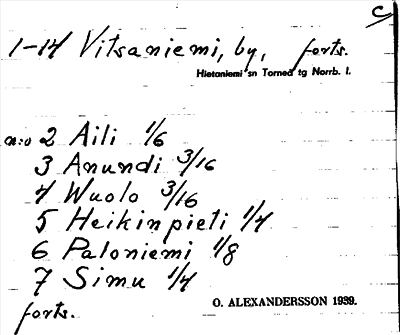 C
1-14 Vitsaniemi, by, forts.
Hietaniemi sn Torneå tg Norrb. l.
n:o 2 Aili 1/6
3 Anundi 3/16
4 Wuolo 3/16
5 Heikinpieti 1/4
6 Paloniemi 1/8
7 Simu 1/4
forts.
O. ALEXANDERSSON 1939.